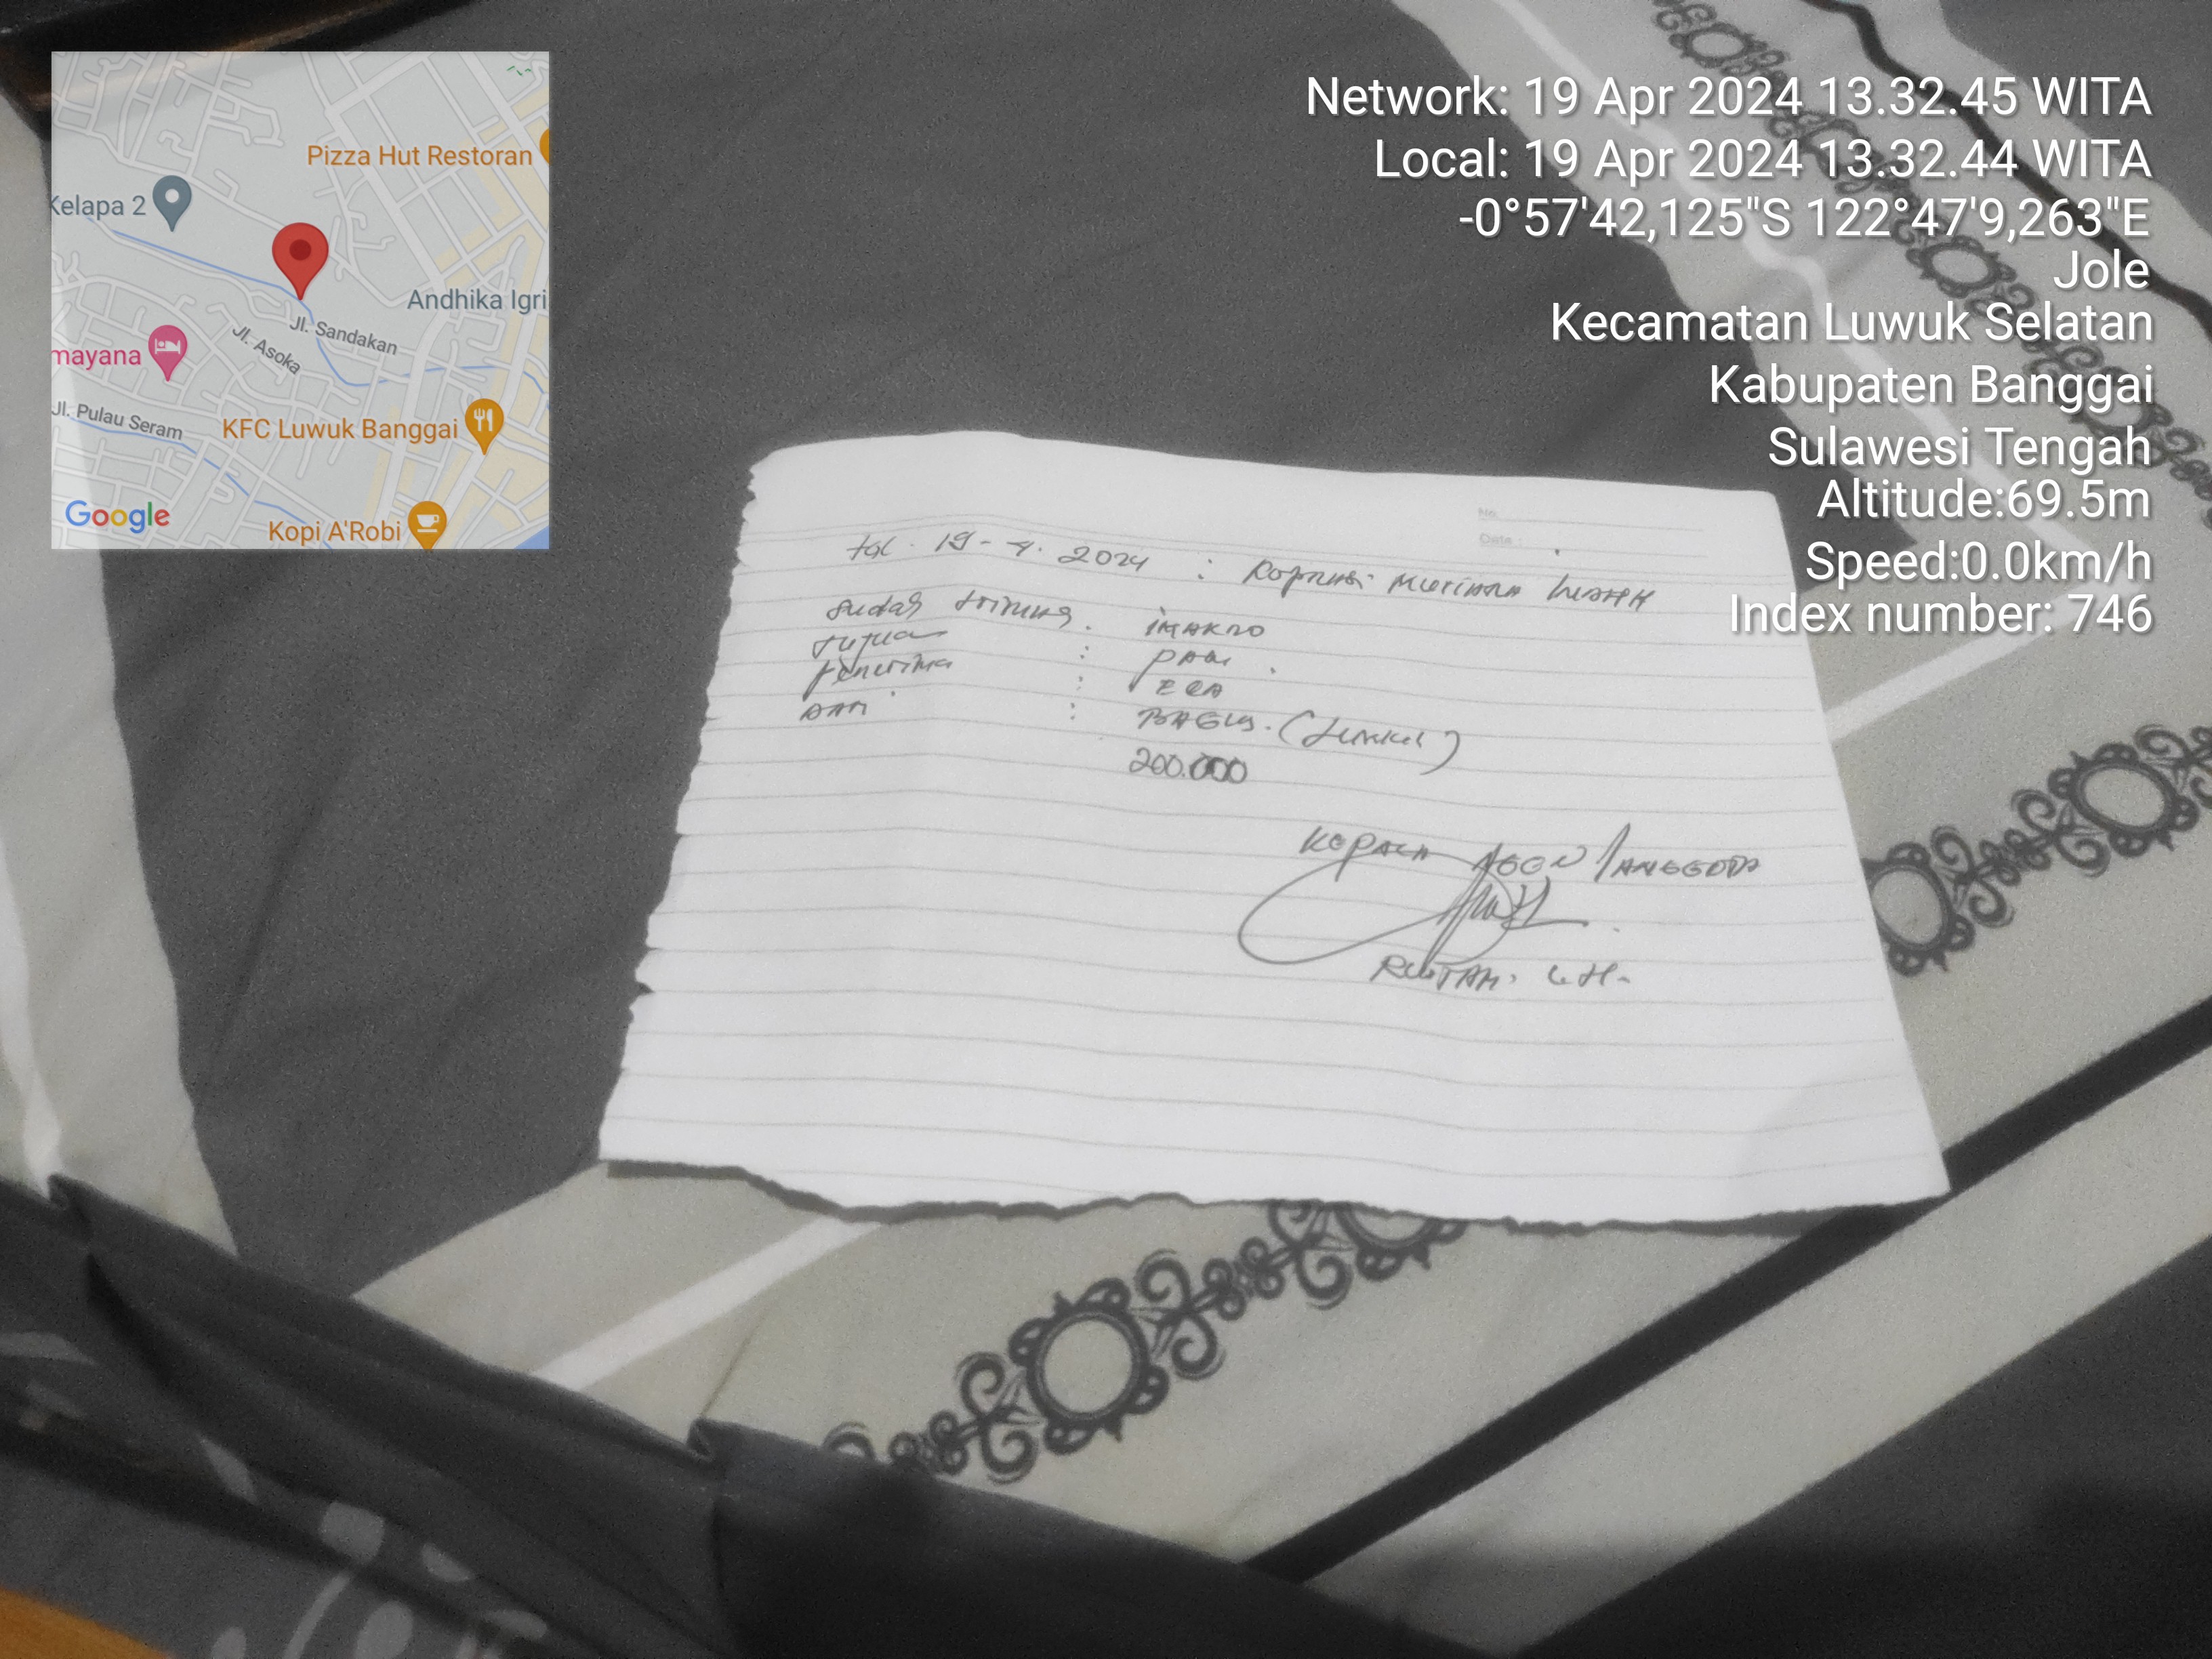 Pizza Hut Restoran
Kelapa 2
Andhika Igri
Jl. Sandakan
Jl. Asoka
mayana
Jl. Pulau Seram
KFC Luwuk Banggai
Google
Kopi A'Robi
Network: 19 Apr 2024 13.32.45 WITA
Local: 19 Apr 2024 13.32.44 WITA
-0°57'42,125"S 122°47'9,263"E
Jole
Kecamatan Luwuk Selatan
Kabupaten Banggai
Sulawesi Tengah
Altitude:69.5m
Speed:0.0km/h
Index number: 746
No.
Date :
tgl. 19-4. 2024 : Koprasi Mutiara
Sudah trima :
tujuan : PALU.
penerima :
DARI : BAGUS. ( )
200.000
KEPALA AGEN TANGGODA
RUSTAM.